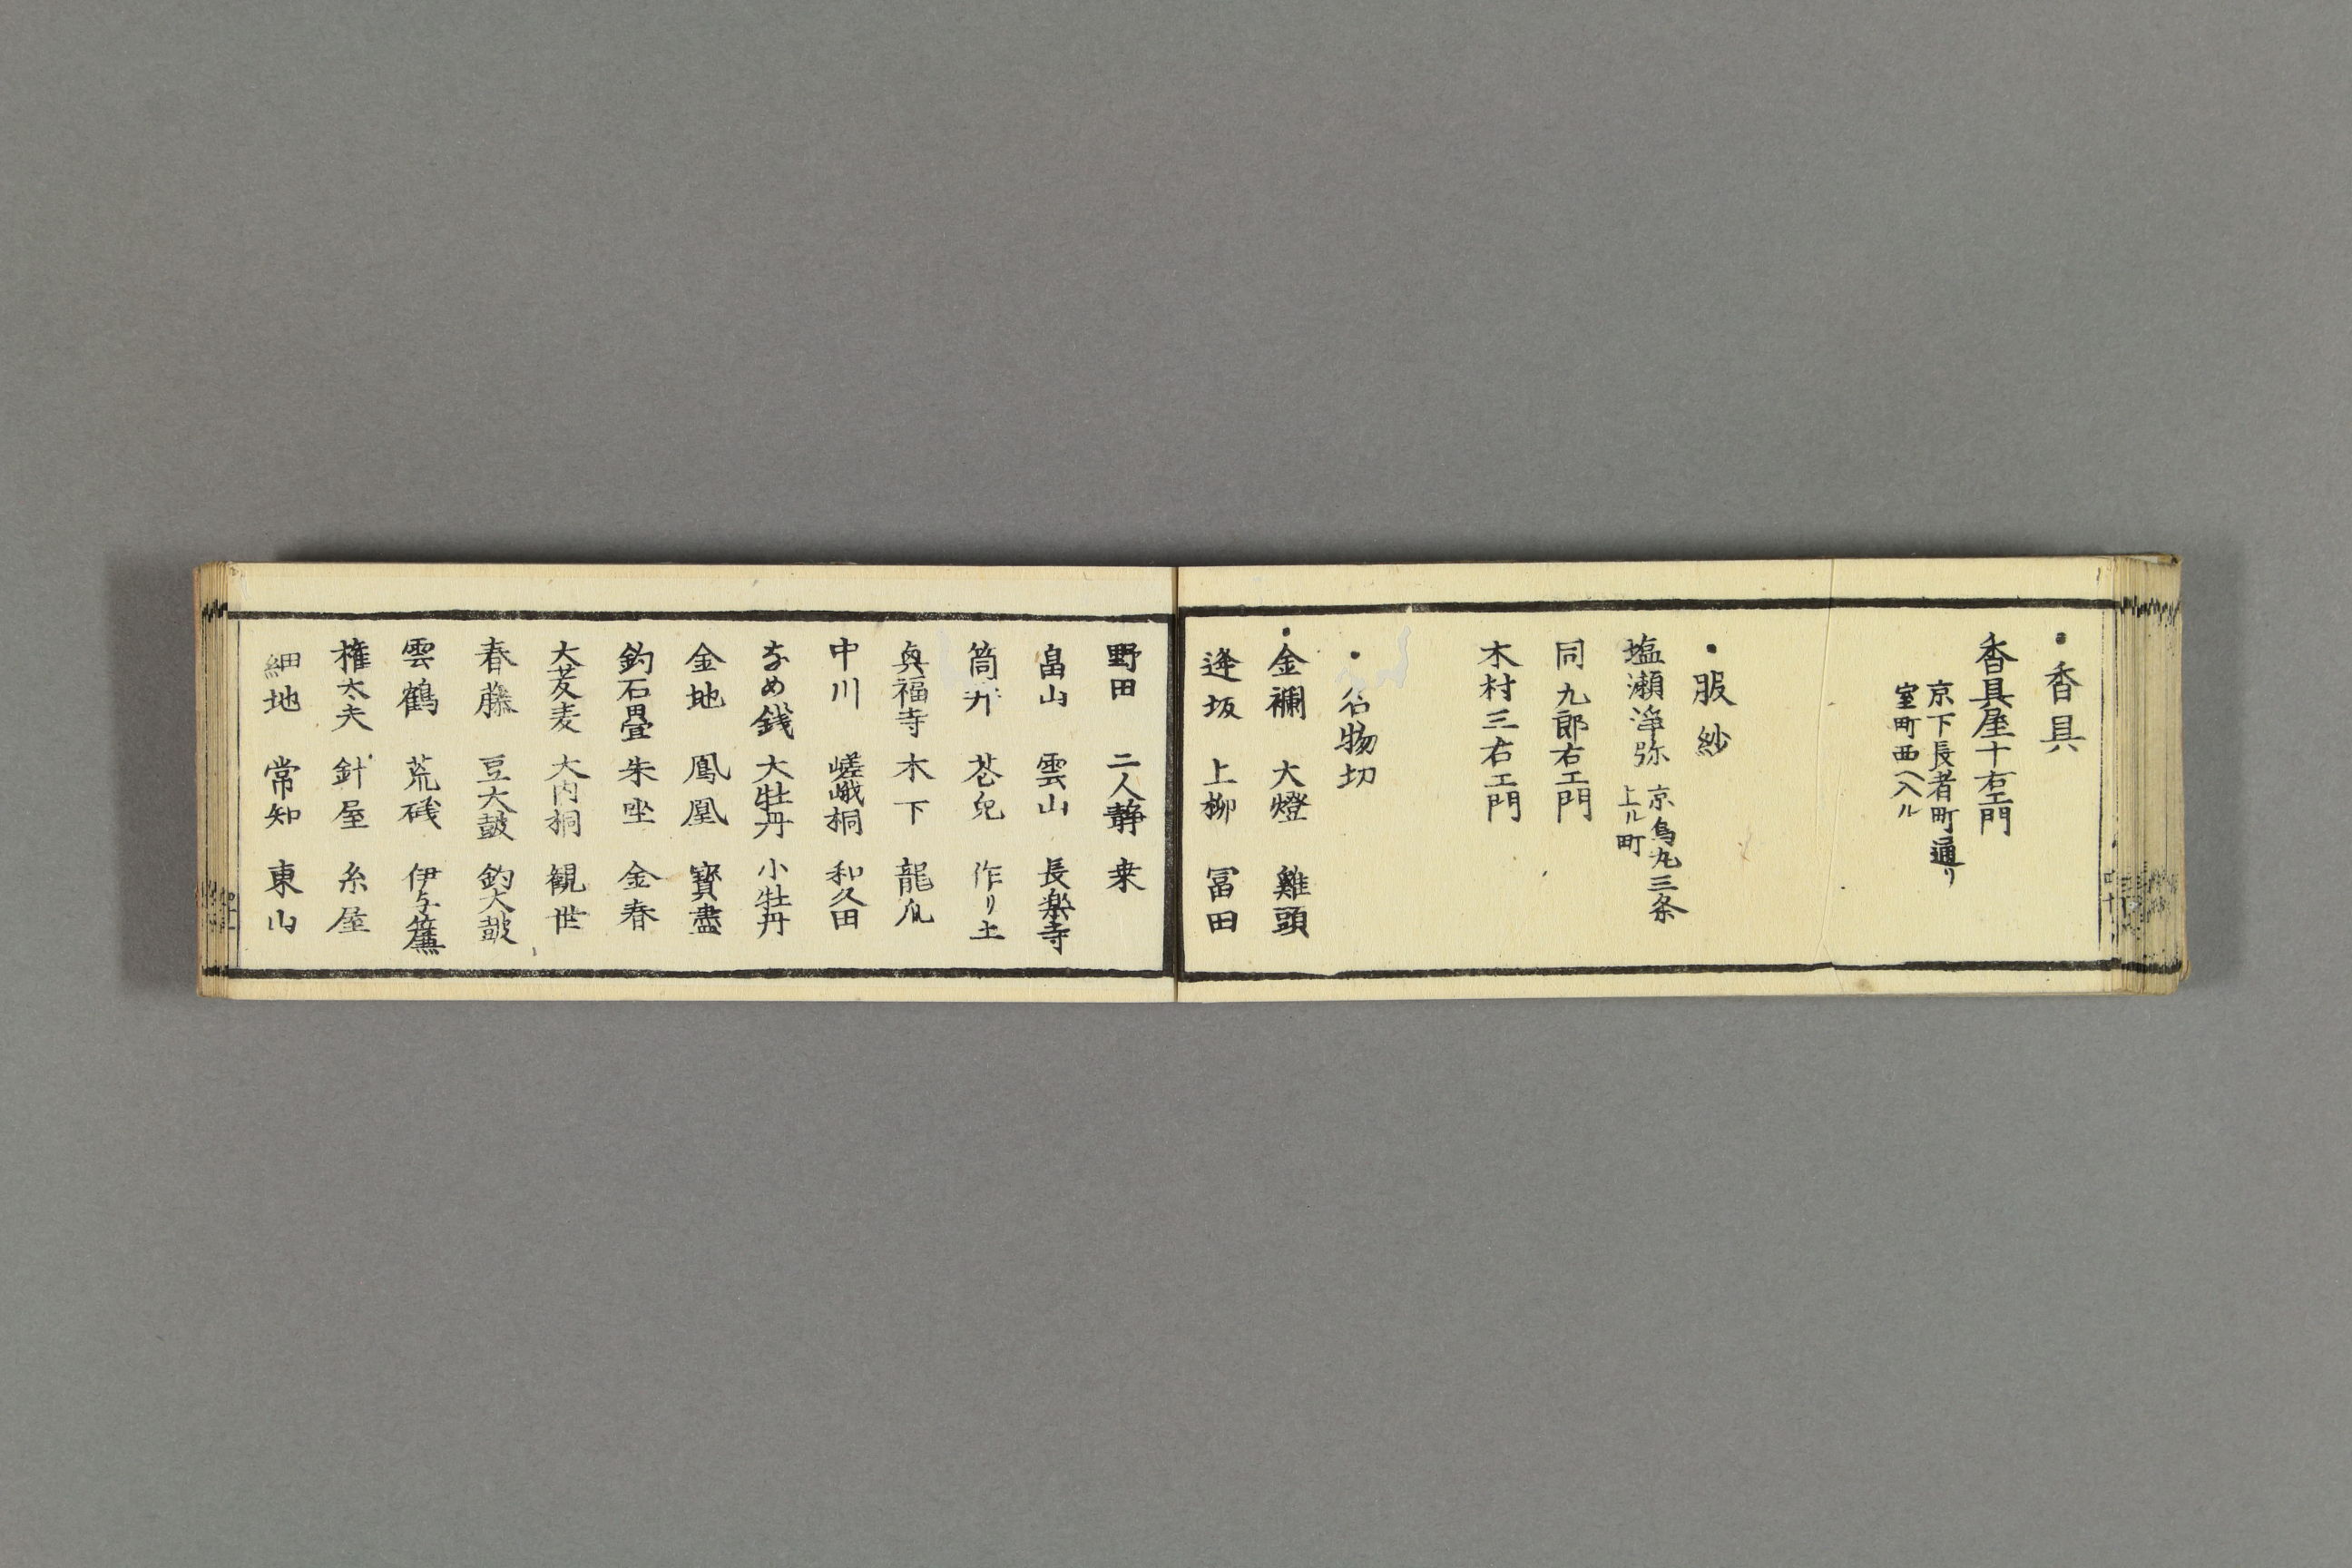 ・香具
香具屋十右エ門
京下長者町通り
室町西ヘ入ル
・服紗
塩瀬浄弥
京烏丸三条
上ル町
同九郎右エ門
木村三右エ門
・名物切
・金襴 大燈 雞頭
逢坂 上柳 冨田
野田 二人静 桒
畠山 雲山 長楽寺
筒井 苍兒 作り土
真福寺 木下 龍爪
中川 嵯峨桐 和久田
なめ銭 大牡丹 小牡丹
金地 鳳凰 寳盡
釣石畳 朱座 金春
大蔓麦 大内桐 観世
春藤 豆大皷 釣大皷
雲鶴 荒磯 伊与簾
権太夫 針屋 糸屋
細地 常知 東山